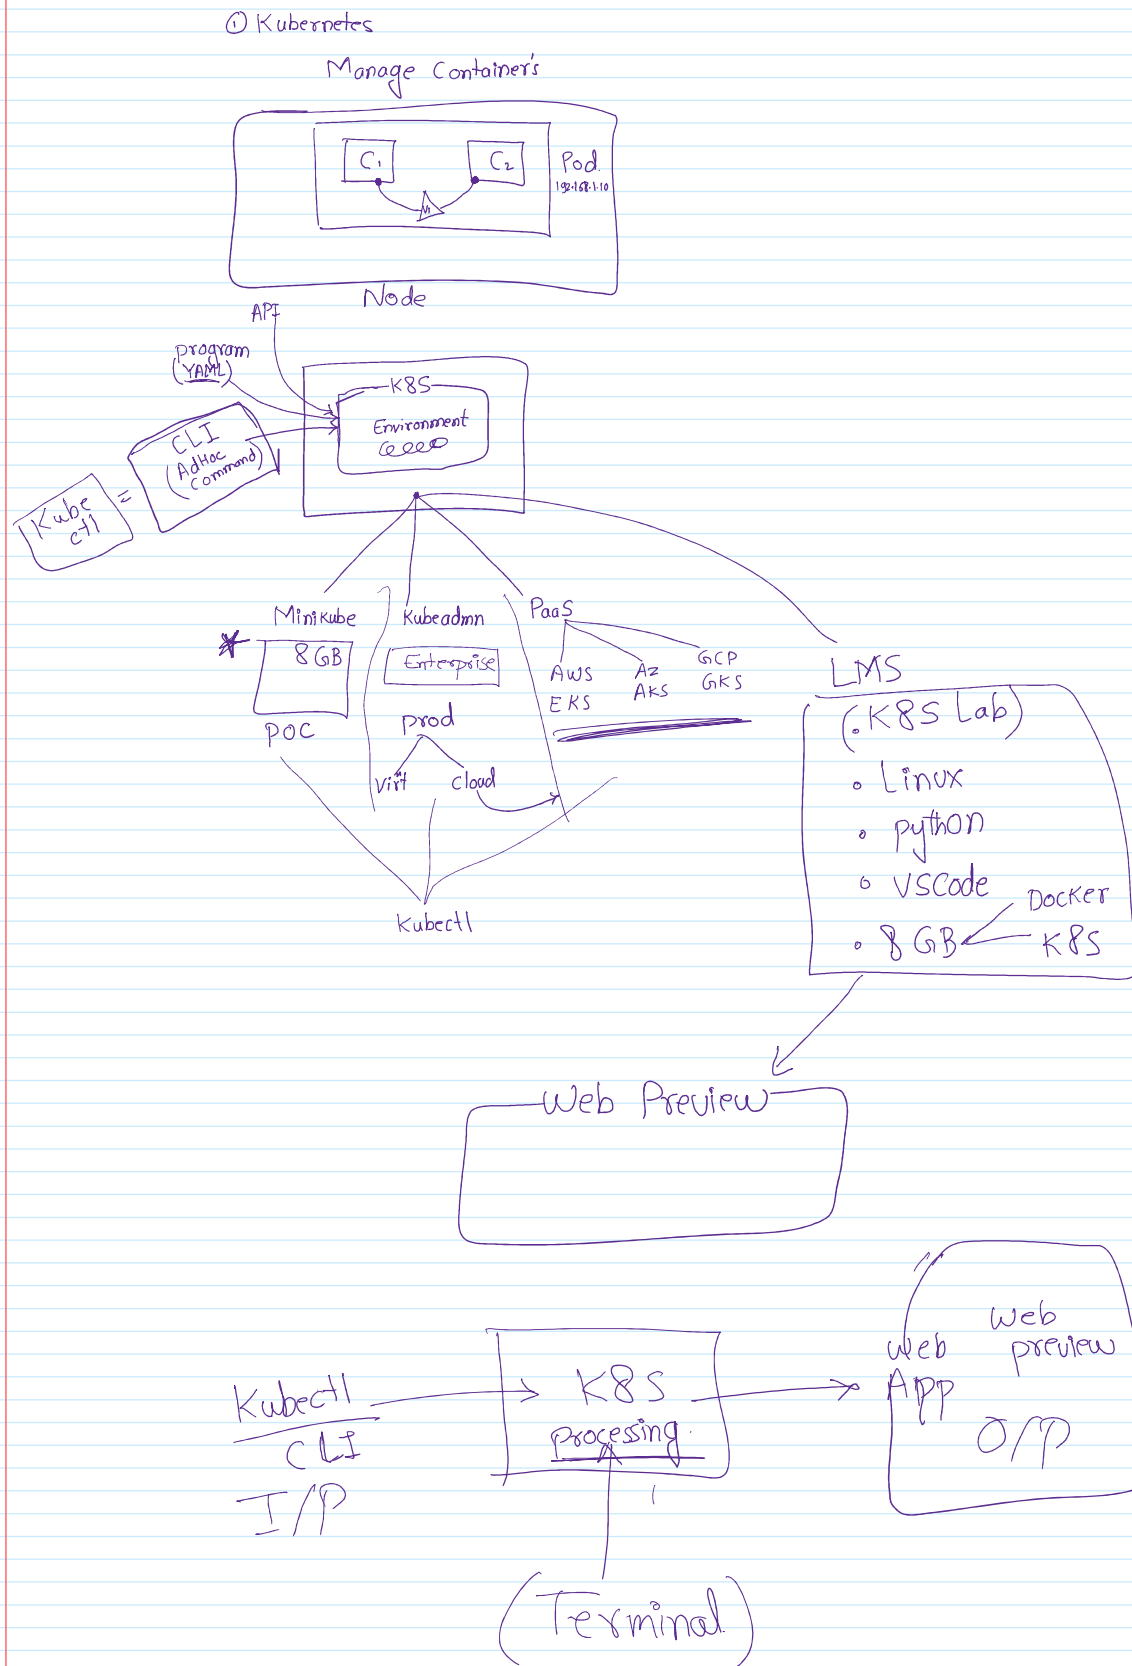 ① Kubernetes
Manage Container's
C1
C2
Pod.
192.168.1.10
V1
Node
API
program
(YAML)
K8S
Environment
CLI
(AdHoc
Command)
Kube
ctl
=
Minikube
8 GB
POC
Kubeadmn
Enterprise
prod
Virt
Cloud
PaaS
AWS
EKS
AZ
AKS
GCP
GKS
Kubectl
LMS
(. K8S Lab)
Linux
python
VSCode
8 GB
Docker
K8S
Web Preview
Kubectl
CLI
I/P
K8S
processing.
Web
App
Web
preview
O/P
(Terminal)